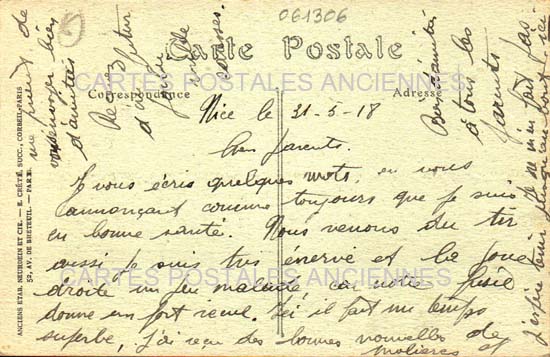 061306
Carte Postale
CARTES POSTALES ANCIENNES
Correspondance
Adresse
ANCIENS ETAB. NEURDEIN ET CIE. — E. CRÉTÉ, SUCC., CORBEIL-PARIS
52, AV. DE BRETEUIL. — PARIS
Nice le 21-5-18
Chers parents.
Je vous écris quelques mots, en vous
annonçant comme toujours que je suis
en bonne santé. Nous venons du tir
aussi je suis très énervé et la joue
droite un peu malade car notre fusil
donne un fort recul. Ici il fait un temps
superbe, j'ai reçu des bonnes nouvelles de
Molières et
me prient de
vous envoyer bien
d'amitiés
Recevez
d'un futur
de
Bien d'amitiés
à tous les
parents
Je ne m'en fait pas
j'espère tenir jusqu'au bout
CARTES POSTALES ANCIENNES